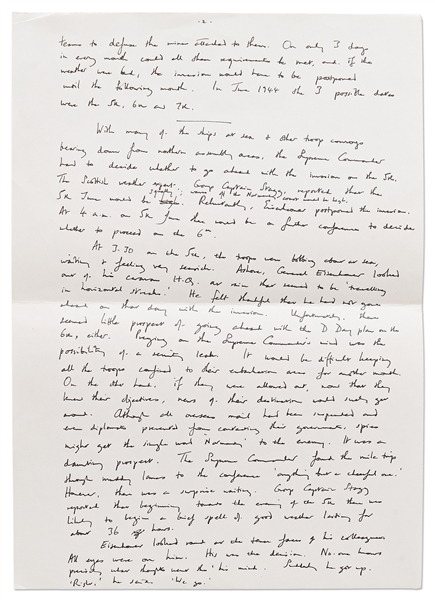 - 2 -
teams to defuse the mines attached to them. On only 3 days
in every month could all these requirements be met, and if the
weather were bad, the invasion would have to be postponed
until the following month. In June 1944 the 3 possible dates
were the 5th, 6th and 7th.
With many of the ships at sea & other troop convoys
bearing down from northern assembly areas, the Supreme Commander
had to decide whether to go ahead with the invasion on the 5th.
The Scottish weather expert, Group Captain Stagg, reported that the
5th June would be
waves off the Normandy coast would be high.
Reluctantly, Eisenhower postponed the invasion.
At 4 a.m. on 5th June there would be a further conference to decide
whether to proceed on the 6th.
At 3.30 on the 5th, the troops were bobbing about at sea,
waiting & feeling very seasick. Ashore, General Eisenhower looked
out of his caravan H.Q. at rain that seemed to be 'travelling
in horizontal streaks.' He felt thankful that he had not gone
ahead on that day with the invasion. Unfortunately, there
seemed little prospect of going ahead with the D Day plan on the
6th, either. Preying on the Supreme Commander's mind was the
possibility of a security leak. It would be difficult keeping
all the troops confined to their embarkation areas for another month.
On the other hand, if they were allowed out, now that they
knew their objectives, news of their destination would surely get
around. Although all overseas mail had been suspended and
even diplomats prevented from contacting their governments, spies
might get the single word 'Normandy' to the enemy. It was a
daunting prospect. The Supreme Commander found the mile trip
through muddy lanes to the conference 'anything but a cheerful one.'
However, there was a surprise waiting. Group Captain Stagg
reported that beginning towards the evening of the 5th there was
likely to begin a brief spell of good weather lasting for
about 36 hours.
Eisenhower looked round at the tense faces of his colleagues.
All eyes were on him. His was the decision. No-one knows
precisely what thoughts were in his mind. Suddenly he got up.
'Right,' he said. 'We go.'